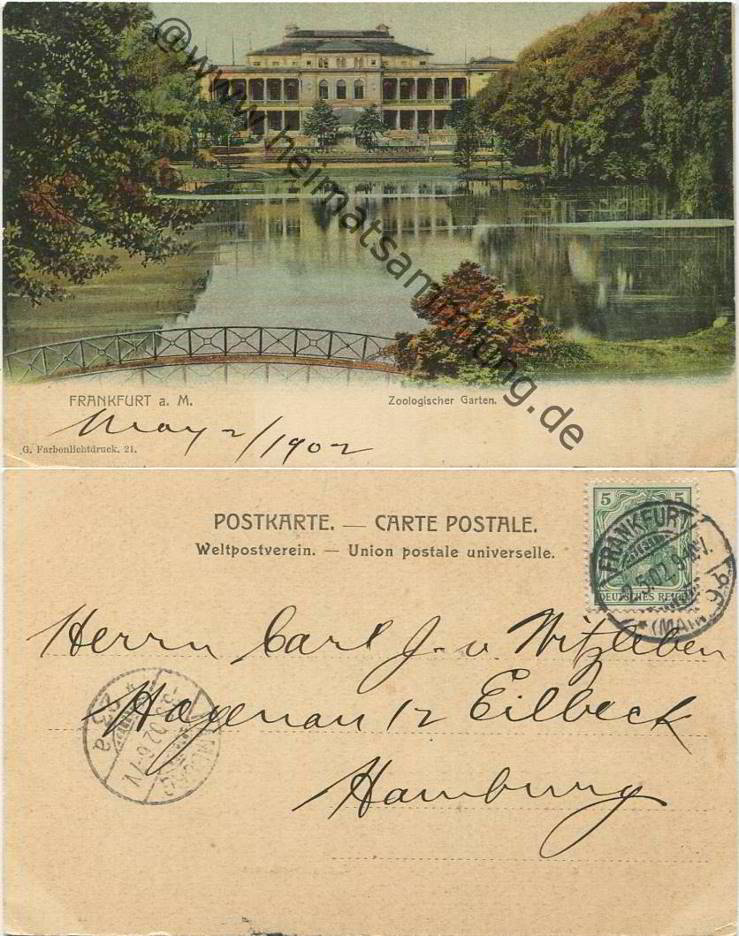 @www.heimatsammlung.de
FRANKFURT a. M.
Zoologischer Garten.
May 2/1902
G. Farbenlichtdruck. 21.
POSTKARTE. — CARTE POSTALE.
Weltpostverein. — Union postale universelle.
5 5
DEUTSCHES REICH
FRANKFURT
2.5.02.
(MAIN)
Herrn Carl J. v. Witzleben
Hagenau 12 Eilbeck
Hamburg
HAMBURG
02.6-7V
23 a